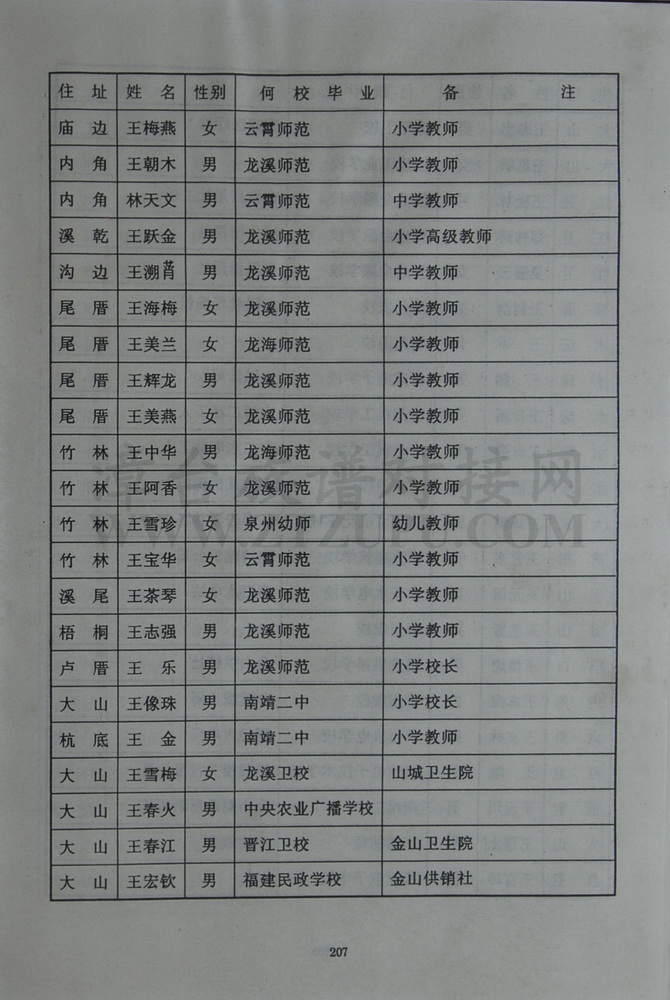 住 址 姓 名 性别 何 校 毕 业 备 注
庙 边 王梅燕 女 云霄师范 小学教师
内 角 王朝木 男 龙溪师范 小学教师
内 角 林天文 男 云霄师范 中学教师
溪 乾 王跃金 男 龙溪师范 小学高级教师
沟 边 王溯 男 龙溪师范 中学教师
尾 厝 王海梅 女 龙溪师范 小学教师
尾 厝 王美兰 女 龙海师范 小学教师
尾 厝 王辉龙 男 龙溪师范 小学教师
尾 厝 王美燕 女 龙溪师范 小学教师
竹 林 王中华 男 龙海师范 小学教师
竹 林 王阿香 女 龙溪师范 小学教师
竹 林 王雪珍 女 泉州幼师 幼儿教师
竹 林 王宝华 女 云霄师范 小学教师
溪 尾 王茶琴 女 龙溪师范 小学教师
梧 桐 王志强 男 龙溪师范 小学教师
卢 厝 王 乐 男 龙溪师范 小学校长
大 山 王像珠 男 南靖二中 小学校长
杭 底 王 金 男 南靖二中 小学教师
大 山 王雪梅 女 龙溪卫校 山城卫生院
大 山 王春火 男 中央农业广播学校
大 山 王春江 男 晋江卫校 金山卫生院
大 山 王宏钦 男 福建民政学校 金山供销社
漳台族谱对接网
WWW.ZTZUPU.COM
207